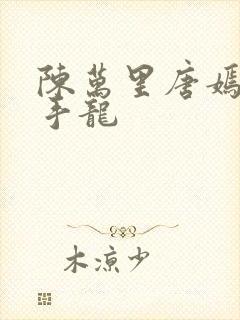 陳萬里唐嫣
手龍
木涼少